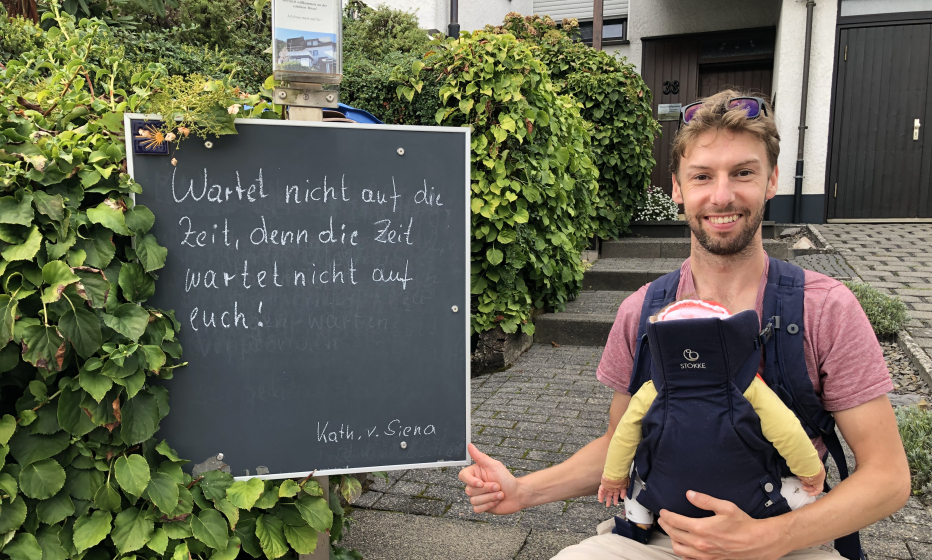 Wartet nicht auf die
Zeit, denn die Zeit
wartet nicht auf
euch!
Kath. v. Siena
38
STOKKE